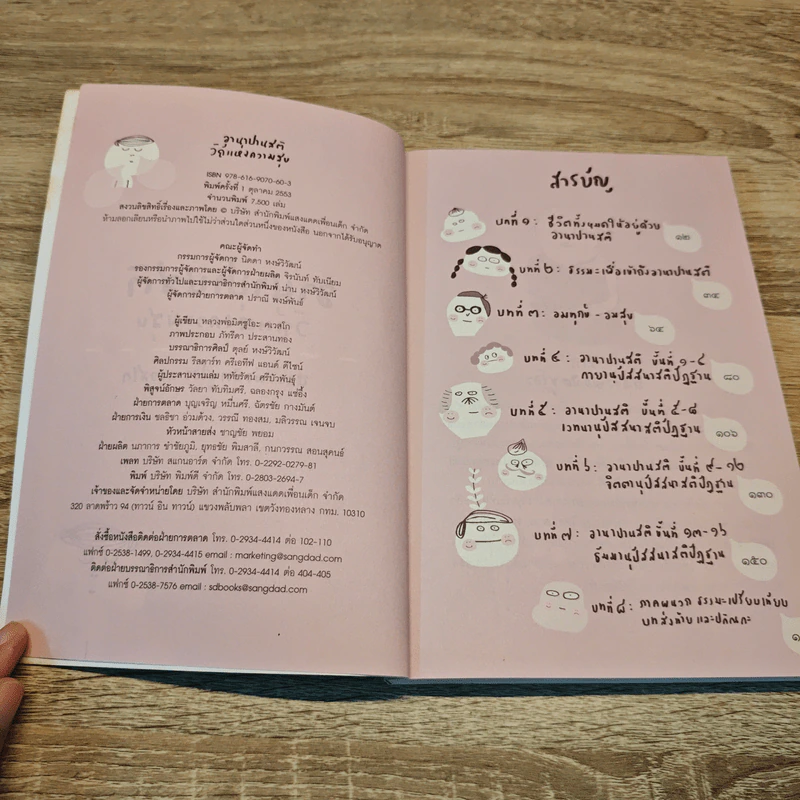 อานาปานสติ
วิถีแห่งความสุข
ISBN 978-616-9070-60-3
พิมพ์ครั้งที่ 1 ตุลาคม 2553
จำนวนพิมพ์ 7,500 เล่ม
สงวนลิขสิทธิ์เรื่องและภาพโดย © บริษัท สำนักพิมพ์แสงแดดเพื่อนเด็ก จำกัด
ห้ามลอกเลียนหรือนำภาพไปใช้ไม่ว่าส่วนใดส่วนหนึ่งของหนังสือ นอกจากได้รับอนุญาต
คณะผู้จัดทำ
กรรมการผู้จัดการ นิดดา หงษ์วิวัฒน์
รองกรรมการผู้จัดการและผู้จัดการฝ่ายผลิต จิรนันท์ ทับเนียม
ผู้จัดการทั่วไปและบรรณาธิการสำนักพิมพ์ น่าน หงษ์วิวัฒน์
ผู้จัดการฝ่ายการตลาด ปราณี พงษ์พันธ์
ผู้เขียน หลวงพ่อมิตซูโอะ คเวสโก
ภาพประกอบ ภัทรีดา ประสานทอง
บรรณาธิการศิลป์ ดุลย์ หงษ์วิวัฒน์
ศิลปกรรม รีสตาร์ท ครีเอทีฟ แอนด์ ดีไซน์
ผู้ประสานงานเล่ม หทัยรัตน์ ศรีบัวพันธุ์
พิสูจน์อักษร วัลยา ทับทิมศรี, ฉลองกรุง แซ่อึ้ง
ฝ่ายการตลาด บุญเจริญ หมื่นศรี, ฉัตรชัย กางมันต์
ฝ่ายการเงิน ชลธิชา อ่วมด้วง, วรรณี ทองสม, มลิวรรณ เจนจบ
หัวหน้าสายส่ง ชาญชัย พยอม
ฝ่ายผลิต นภาการ ขำชัยภูมิ, ยุทธชัย พิมสาลี, กนกวรรณ สอนสุคนธ์
เพลท บริษัท สแกนอาร์ต จำกัด โทร. 0-2292-0279-81
พิมพ์ บริษัท พิมพ์ดี จำกัด โทร. 0-2803-2694-7
เจ้าของและจัดจำหน่ายโดย บริษัท สำนักพิมพ์แสงแดดเพื่อนเด็ก จำกัด
320 ลาดพร้าว 94 (ทาวน์ อิน ทาวน์) แขวงพลับพลา เขตวังทองหลาง กทม. 10310
สั่งซื้อหนังสือติดต่อฝ่ายการตลาด โทร. 0-2934-4414 ต่อ 102-110
แฟกซ์ 0-2538-1499, 0-2934-4415 email : marketing@sangdad.com
ติดต่อฝ่ายบรรณาธิการสำนักพิมพ์ โทร. 0-2934-4414 ต่อ 404-405
แฟกซ์ 0-2538-7576 email : sdbooks@sangdad.com
สารบัญ
บทที่ ๑ : ชีวิตทั้งหมดให้อยู่ด้วย
อานาปานสติ
๑๒
บทที่ ๒ : ธรรมะเพื่อเข้าถึงอานาปานสติ
๓๔
บทที่ ๓ : อมทุกข์ - อมสุข
๖๔
บทที่ ๔ : อานาปานสติ ขั้นที่ ๑-๔
กายานุปัสสนาสติปัฏฐาน
๘๐
บทที่ ๕ : อานาปานสติ ขั้นที่ ๕-๘
เวทนานุปัสสนาสติปัฏฐาน
๑๐๖
บทที่ ๖ : อานาปานสติ ขั้นที่ ๙-๑๒
จิตตานุปัสสนาสติปัฏฐาน
๑๓๐
บทที่ ๗ : อานาปานสติ ขั้นที่ ๑๓-๑๖
ธัมมานุปัสสนาสติปัฏฐาน
๑๕๐
บทที่ ๘ : ภาคผนวก ธรรมะเปรียบเทียบ
บทส่งท้าย และปกิณกะ